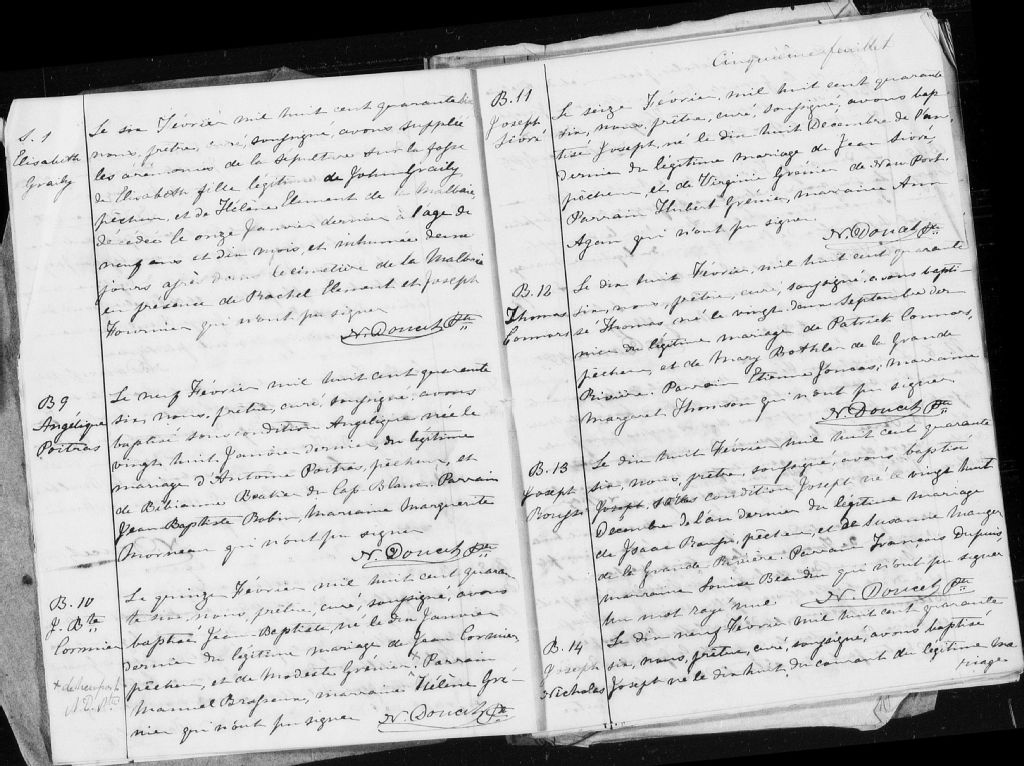 S. 1
Elisabeth
Graily
Le six Février mil huit cent quarante six
nous, prêtre, curé, soussigné, avons suppléé
les cérémonies de la sépulture sur la fosse
d'Elisabeth fille légitime de John Graily
pêcheur, et de Hélène Element de la Malbaie,
décédée le onze Janvier dernier à l'age de
neuf ans et dix mois, et inhumée deux
jours après dans le cimetière de la Malbaie
en présence de Rachel Element et Joseph
Fournier qui n'ont pu signer
N. Doucet Ptre
B 9
Angélique
Poitras
Le neuf Février mil huit cent quarante
six, nous, prêtre, curé, soussigné, avons
baptisé sous condition Angélique née le
vingt huit Janvier dernier, du légitime
mariage d'Antoine Poitras, pêcheur, et
de Bibianne Beatier du Cap Blanc. Parrain
Jean Baptiste Bobin, Marraine Marguerite
Morneau qui n'ont pu signer
N. Doucet Ptre
B. 10
J. Bte
Cormier
Le quinze Février mil huit cent quaran
te six, nous, prêtre, curé, soussigné, avons
baptisé Jean Baptiste, né le dix Janvier
dernier du légitime mariage de Jean Cormier
pêcheur, et de Modeste Grenier. Parrain
Manuel Brasseur, marraine Hélène Gre-
nier qui n'ont pu signer
N. Doucet Ptre
+ de Newport
N. D. Ptre
Cinquième feuillet
B. 11
Joseph
Sivré
Le seize Février, mil huit cent quarante
six, nous, prêtre, curé, soussigné, avons bap
tisé Joseph, né le dix huit Décembre de l'an
dernier du légitime mariage de Jean Sivré
pêcheur et de Virginie Grénier de New Port.
Parrain Hubert Grénier, marraine Ann
Agan qui n'ont pu signer
N. Doucet Ptre
B. 12
Thomas
Connors
Le dix huit Février, mil huit cent quarante
six, nous, prêtre, curé, soussigné, avons bapti-
sé Thomas, né le vingt deux Septembre der
nier du légitime mariage de Patrick Connors,
pêcheur, et de Mary Bothler de la Grande
Rivière. Parrain Etienne Joncas, marraine
Margret Thomson qui n'ont pu signer
N. Doucet Ptre
B. 13
Joseph
Le dix huit Février mil huit cent quarante
six, nous, prêtre, soussigné, avons baptisé
Joseph, sous condition Joseph né le vingt huit
Décembre de l'an dernier du légitime mariage
de Isaac pêcheur, et de Susanne Mauger
de la Grande Rivière. Parrain Francois Dupuis,
marraine Louise Beaudin qui n'ont pu signer
Un mot rayé nul
N. Doucet Ptre
B. 14
Joseph
Nicholas
Le dix neuf Février mil huit cent quarante
six, nous, prêtre, curé, soussigné, avons baptisé
Joseph né le dix huit du courant de légitime ma
riage